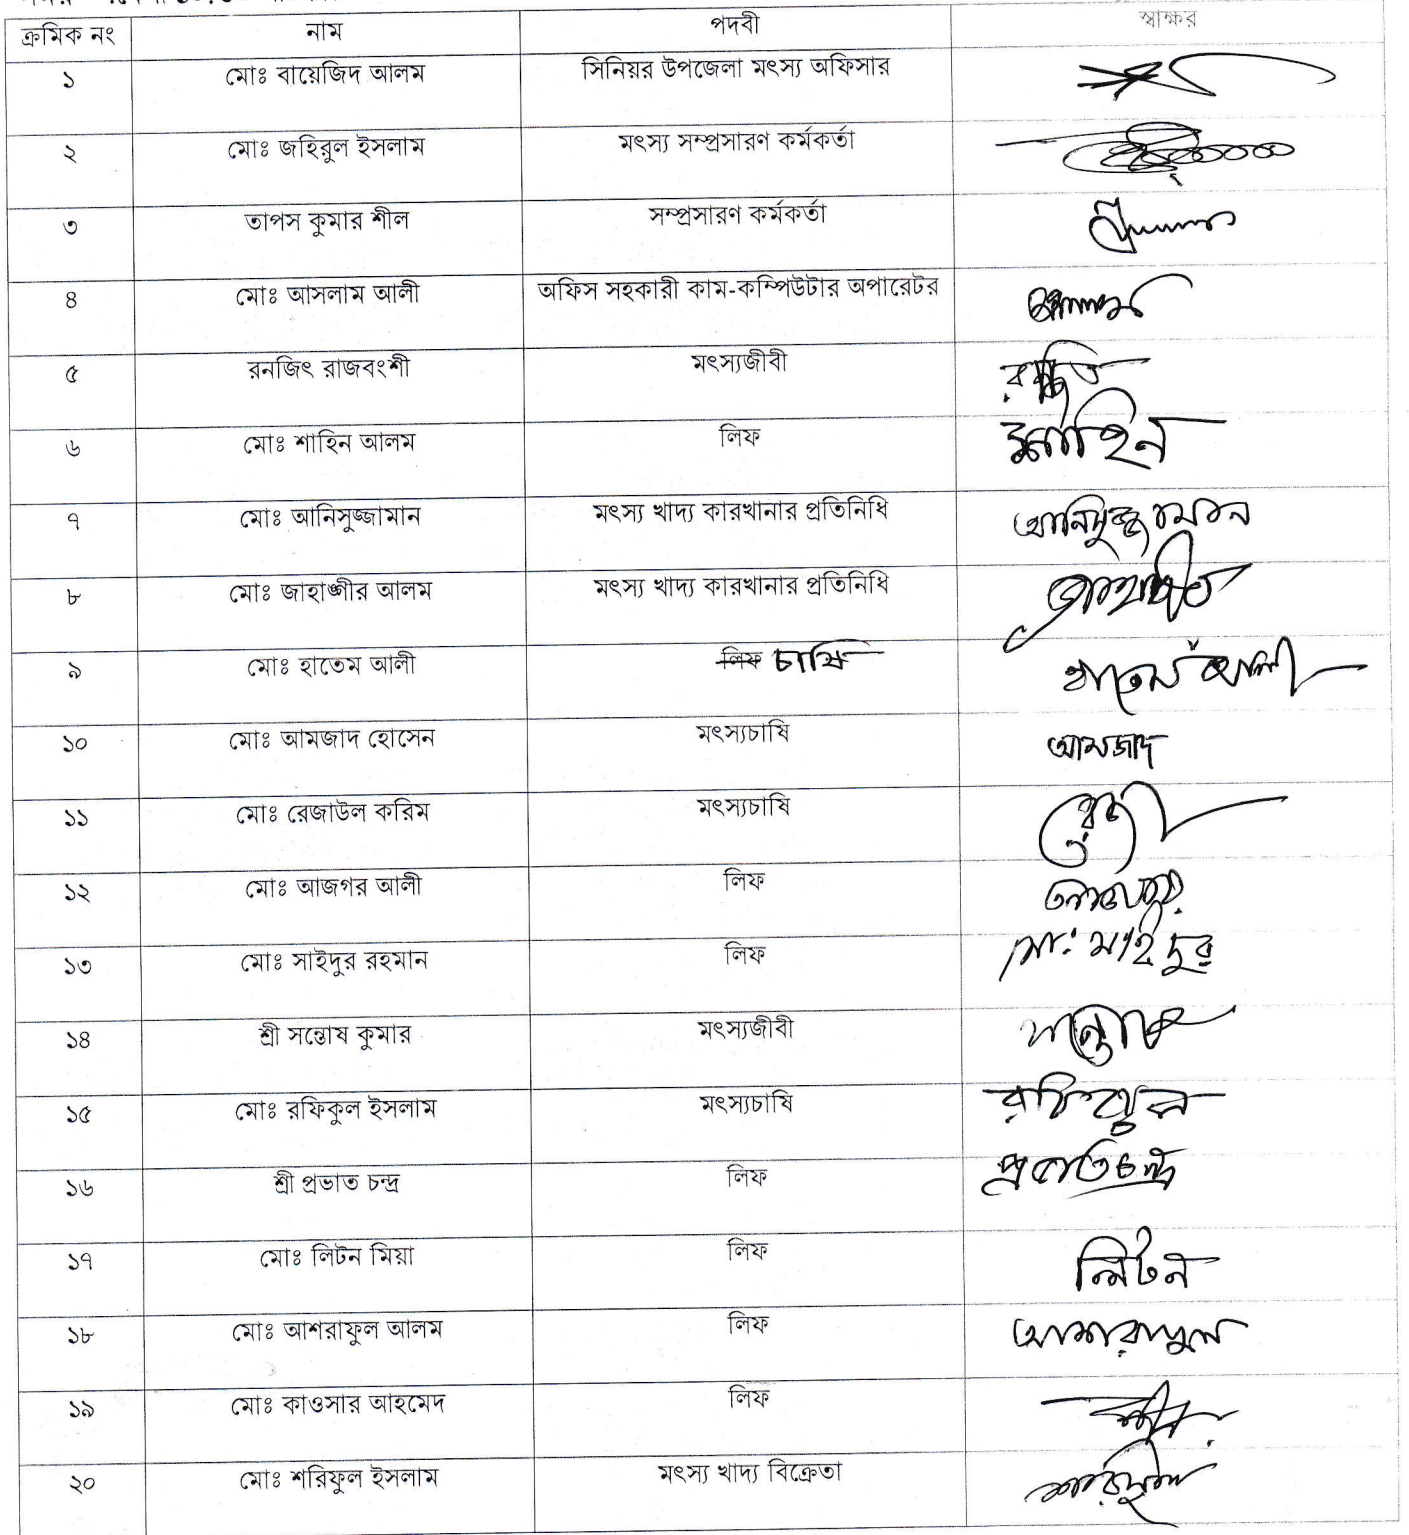 ক্রমিক নং নাম পদবী স্বাক্ষর
১ মোঃ বায়েজিদ আলম সিনিয়র উপজেলা মৎস্য অফিসার
২ মোঃ জহিরুল ইসলাম মৎস্য সম্প্রসারণ কর্মকর্তা
৩ তাপস কুমার শীল সম্প্রসারণ কর্মকর্তা
৪ মোঃ আসলাম আলী অফিস সহকারী কাম-কম্পিউটার অপারেটর
৫ রনজিৎ রাজবংশী মৎস্যজীবী
৬ মোঃ শাহিন আলম লিফ শাহিন
৭ মোঃ আনিসুজ্জামান মৎস্য খাদ্য কারখানার প্রতিনিধি আনিসুজ্জামান
৮ মোঃ জাহাঙ্গীর আলম মৎস্য খাদ্য কারখানার প্রতিনিধি
৯ মোঃ হাতেম আলী লিফ চাষি হাতেম আলী
১০ মোঃ আমজাদ হোসেন মৎস্যচাষি আমজাদ
১১ মোঃ রেজাউল করিম মৎস্যচাষি
১২ মোঃ আজগর আলী লিফ
১৩ মোঃ সাইদুর রহমান লিফ মো: সাইদুর
১৪ শ্রী সন্তোষ কুমার মৎস্যজীবী
১৫ মোঃ রফিকুল ইসলাম মৎস্যচাষি রফিকুল
১৬ শ্রী প্রভাত চন্দ্র লিফ প্রভাত চন্দ্র
১৭ মোঃ লিটন মিয়া লিফ লিটন
১৮ মোঃ আশরাফুল আলম লিফ আশরাফুল
১৯ মোঃ কাওসার আহমেদ লিফ
২০ মোঃ শরিফুল ইসলাম মৎস্য খাদ্য বিক্রেতা শরিফুল